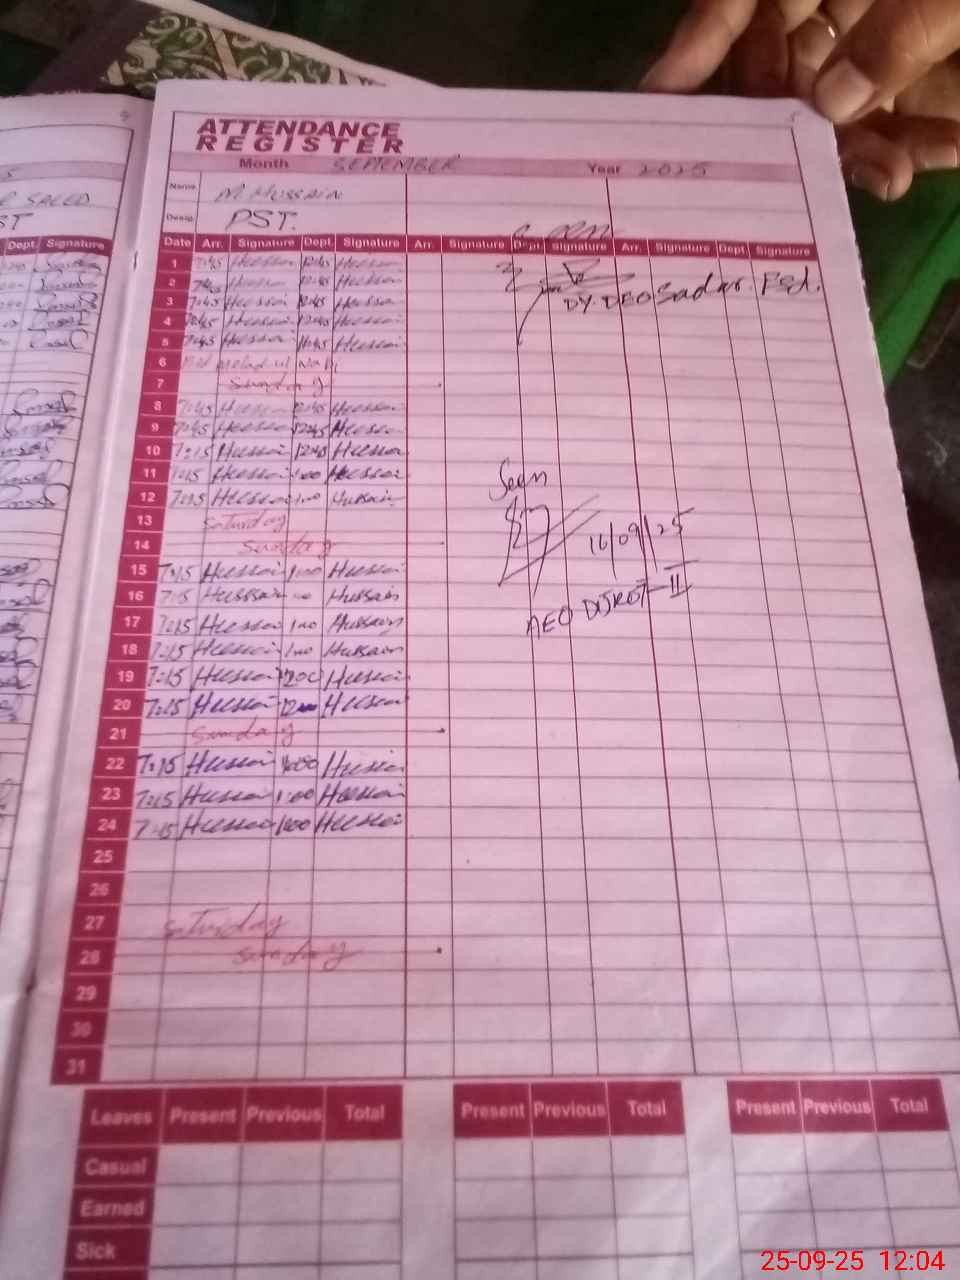 ATTENDANCE
REGISTER
Month SEPTEMBER Year 2025
Name M. Hussain
Desig. PST.
Date Arr. Signature Dept. Signature Arr. Signature Dept. Signature Arr. Signature Dept. Signature
1 7:45 Hussain 12:45 Hussain
2 7:45 Hussain 12:45 Hussain
DY. DEO Sadar Fsd.
3 7:45 Hussain 12:45 Hussain
4 7:45 Hussain 12:45 Hussain
5 7:45 Hussain 11:45 Hussain
6 Eid melad ul Nabi
7 Sunday
8 7:45 Hussain 12:45 Hussain
9 7:45 Hussain 12:45 Hussain
10 7:15 Hussain 12:45 Hussain
11 7:15 Hussain 1:00 Hussain
Seen
12 7:15 Hussain 1:00 Hussain
13 Saturday
14 Sunday
16/09/25
15 7:15 Hussain 1:00 Hussain
16 7:15 Hussain 1:00 Hussain
17 7:15 Hussain 1:00 Hussain
AEO
18 7:15 Hussain 1:00 Hussain
19 7:15 Hussain 1200 Hussain
20 7:15 Hussain Hussain
21 Sunday
22 7:15 Hussain 1:00 Hussain
23 7:15 Hussain 1:00 Hussain
24 7:15 Hussain 1:00 Hussain
25
26
27 Saturday
28 Sunday
29
30
31
Leaves Present Previous Total Present Previous Total Present Previous Total
Casual
Earned
Sick
25-09-25 12:04